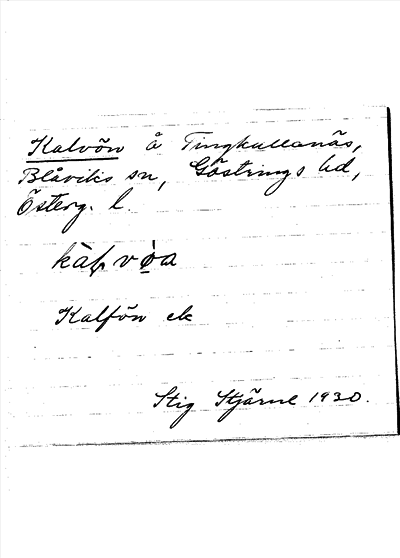 Kalvön å Tingkallanäs,
Blåviks sn, Göstrings hd,
Österg. l.
Kalfön ek
Stig Stjärne 1930.